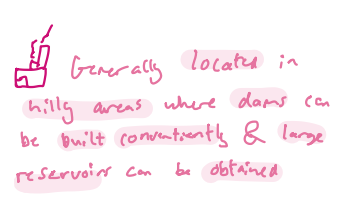 Generally located in
hilly areas where dams can
be built conventiently & large
reservoirs can be obtained